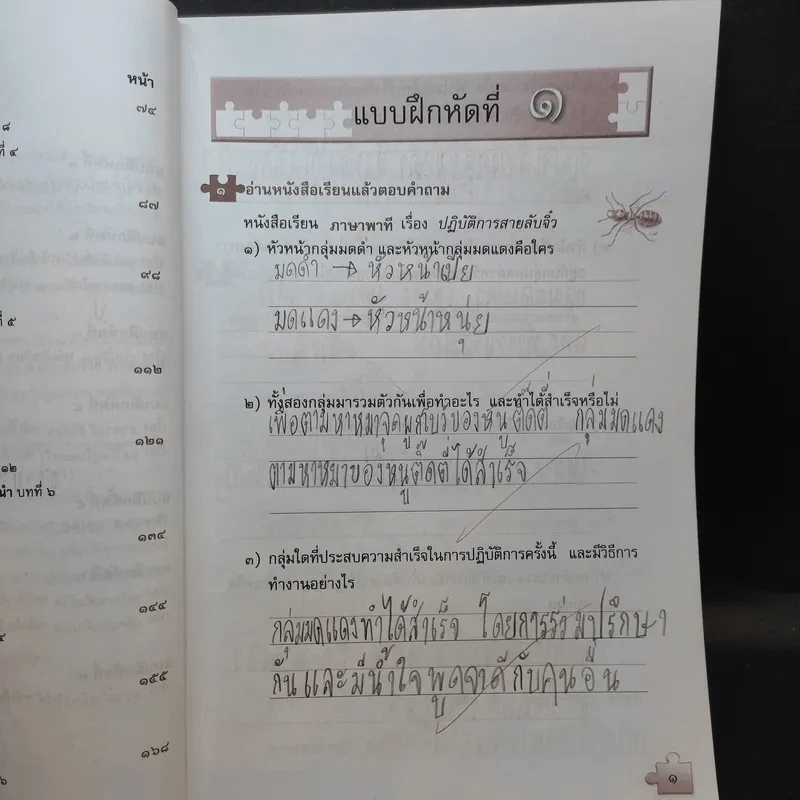 หน้า
๗๔
๘
ที่ ๔
๘๗
๙๘
ที่ ๕
๑๑๒
๑๒๑
๑๒
นำ บทที่ ๖
๑๓๔
๑๔๔
๑๕๕
๑๖๘
๖
แบบฝึกหัดที่ ๑
๑ อ่านหนังสือเรียนแล้วตอบคำถาม
หนังสือเรียน ภาษาพาที เรื่อง ปฏิบัติการสายลับจิ๋ว
๑) หัวหน้ากลุ่มมดดำ และหัวหน้ากลุ่มมดแดงคือใคร
มดดำ → หัวหน้าเปีย
มดแดง → หัวหน้าหนุ่ย
๒) ทั้งสองกลุ่มมารวมตัวกันเพื่อทำอะไร และทำได้สำเร็จหรือไม่
เพื่อตามหาหมาจุคผูกโบว์ของหนูติ๊ดตี่ กลุ่มมดแดง
ตามหาหมาของหนูติ๊ดตี่ได้สำเร็จ
๓) กลุ่มใดที่ประสบความสำเร็จในการปฏิบัติการครั้งนี้ และมีวิธีการ
ทำงานอย่างไร
กลุ่มมดแดงทำได้สำเร็จ โดยการร่วมปรึกษา
กันและมีน้ำใจพูดจาดีกับคนอื่น
๑